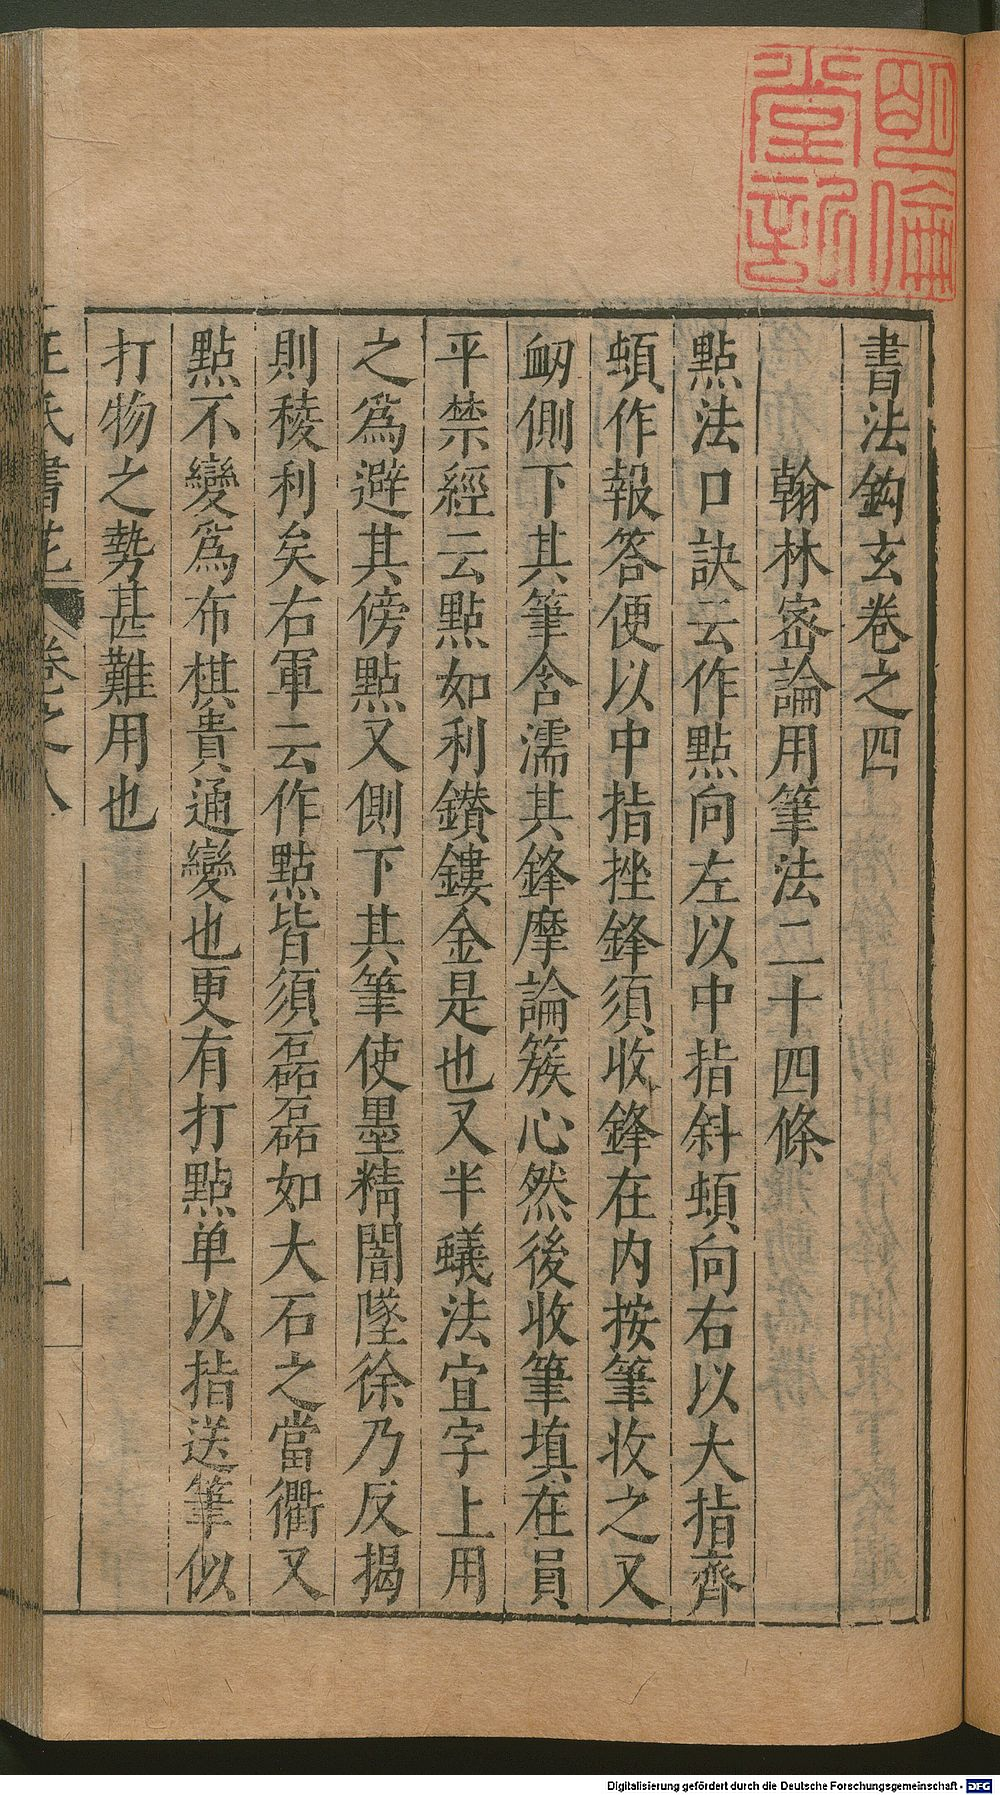 明倫
堂記
書法鈎玄卷之四
翰林宻論用筆法二十四條
點法口訣云作點向左以中指斜頓向右以大指齊
頓作報答便以中指挫鋒須收鋒在内按筆收之又
衂側下其筆含濡其鋒摩論簇心然後收筆填在員
平禁經云點如利鑚鏤金是也又半蟻法宜字上用
之爲避其傍點又側下其筆使墨精闇墜徐乃反揭
則稜利矣右軍云作點皆須磊磊如大石之當衢又
點不變爲布棋貴通變也更有打點单以指送筆似
打物之勢甚難用也
王氏書苑 卷之八 一
Digitalisierung gefördert durch die Deutsche Forschungsgemeinschaft - DFG